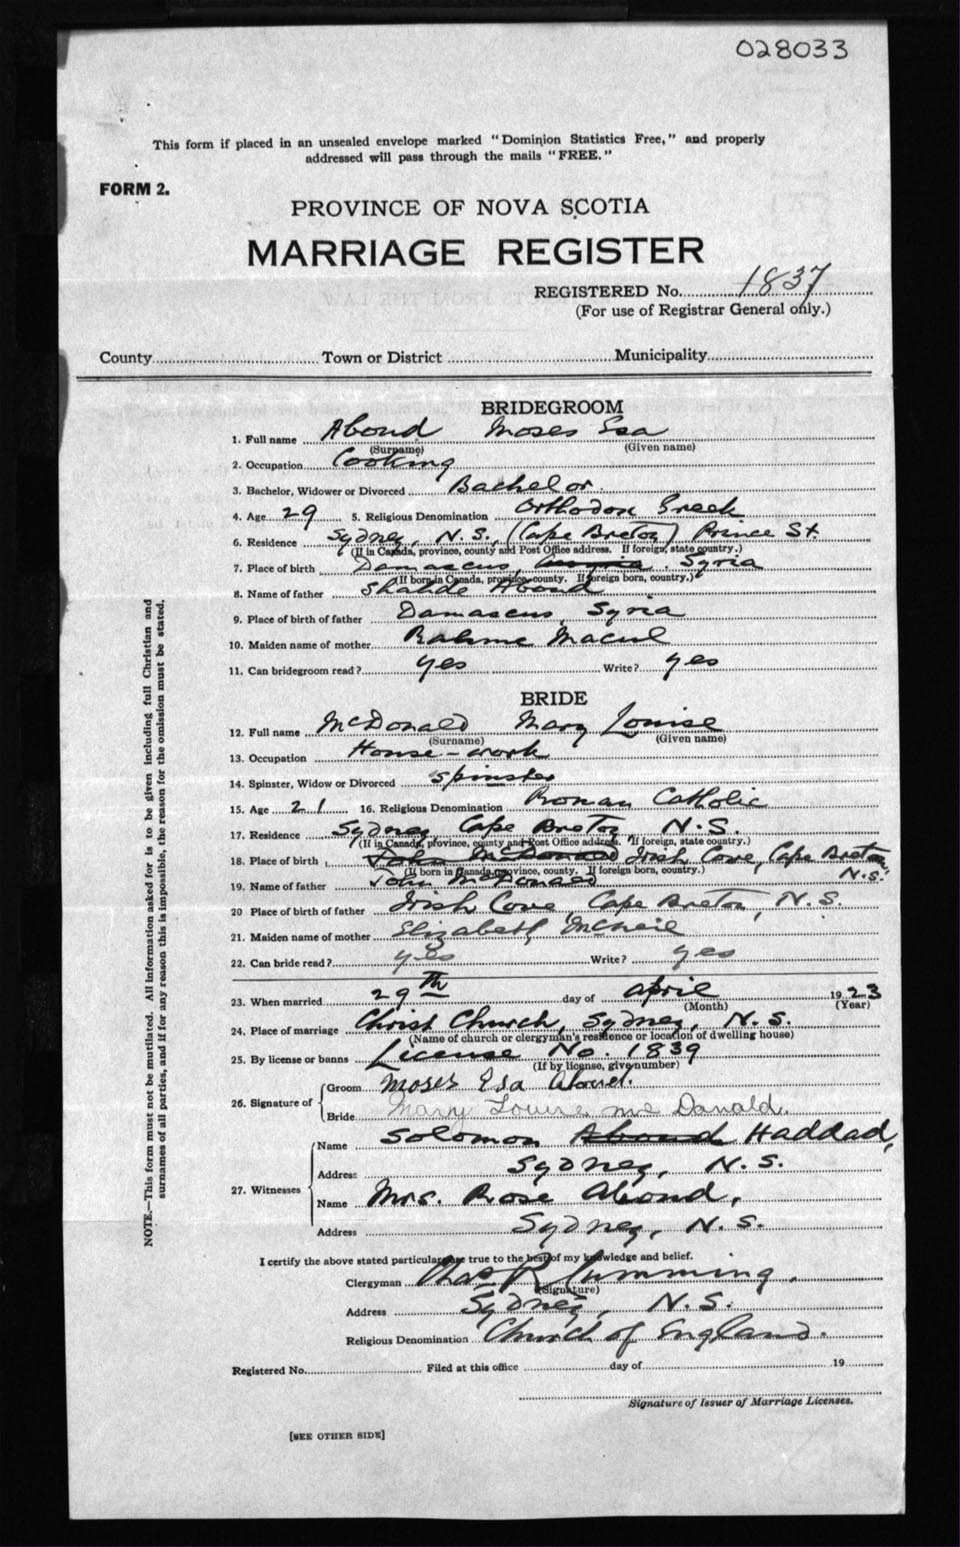 028033
This form if placed in an unsealed envelope marked "Dominion Statistics Free," and properly
addressed will pass through the mails "FREE."
FORM 2.
PROVINCE OF NOVA SCOTIA
MARRIAGE REGISTER
REGISTERED No. 1837
(For use of Registrar General only.)
County Town or District Municipality
BRIDEGROOM
1. Full name Abond Moses Esa
(Surname) (Given name)
2. Occupation Cooking
3. Bachelor, Widower or Divorced Bachelor
4. Age 29 5. Religious Denomination Orthodox Greek
6. Residence Sydney, N.S., (Cape Breton) Prince St.
(If in Canada, province, county and Post Office address. If foreign, state country.)
7. Place of birth Damascus, Syria
(If born in Canada, province, county. If foreign born, country.)
8. Name of father Abond
9. Place of birth of father Damascus, Syria
10. Maiden name of mother Rahme
11. Can bridegroom read? yes Write? yes
BRIDE
12. Full name McDonald Mary Louise
(Surname) (Given name)
13. Occupation House-work
14. Spinster, Widow or Divorced Spinster
15. Age 21 16. Religious Denomination Roman Catholic
17. Residence Sydney, Cape Breton N.S.
(If in Canada, province, county and Post Office address. If foreign, state country.)
18. Place of birth John McDonald Irish Cove, Cape Breton, N.S.
(If born in Canada, province, county. If foreign born, country.)
19. Name of father John McDonald
20 Place of birth of father Irish Cove, Cape Breton, N.S.
21. Maiden name of mother Elizabeth McNeil
22. Can bride read? yes Write? yes
23. When married 29th day of April 1923
(Month) (Year)
24. Place of marriage Christ Church, Sydney, N.S.
(Name of church or clergyman's residence or location of dwelling house)
25. By license or banns License No. 1839
(If by license, give number)
26. Signature of Groom Moses Esa Aboud.
Bride Mary Louise mc Danald.
27. Witnesses Name Solomon Abond Haddad,
Address Sydney, N.S.
Name Mrs. Rose Abond,
Address Sydney, N.S.
I certify the above stated particulars are true to the best of my knowledge and belief.
Clergyman Chas R Cumming.
(Signature)
Address Sydney, N.S.
Religious Denomination Church of England.
Registered No. Filed at this office day of 19
Signature of Issuer of Marriage Licenses.
[SEE OTHER SIDE]
NOTE.—This form must not be mutilated. All information asked for is to be given including full Christian and
surnames of all parties, and if for any reason this is impossible, the reason for the omission must be stated.